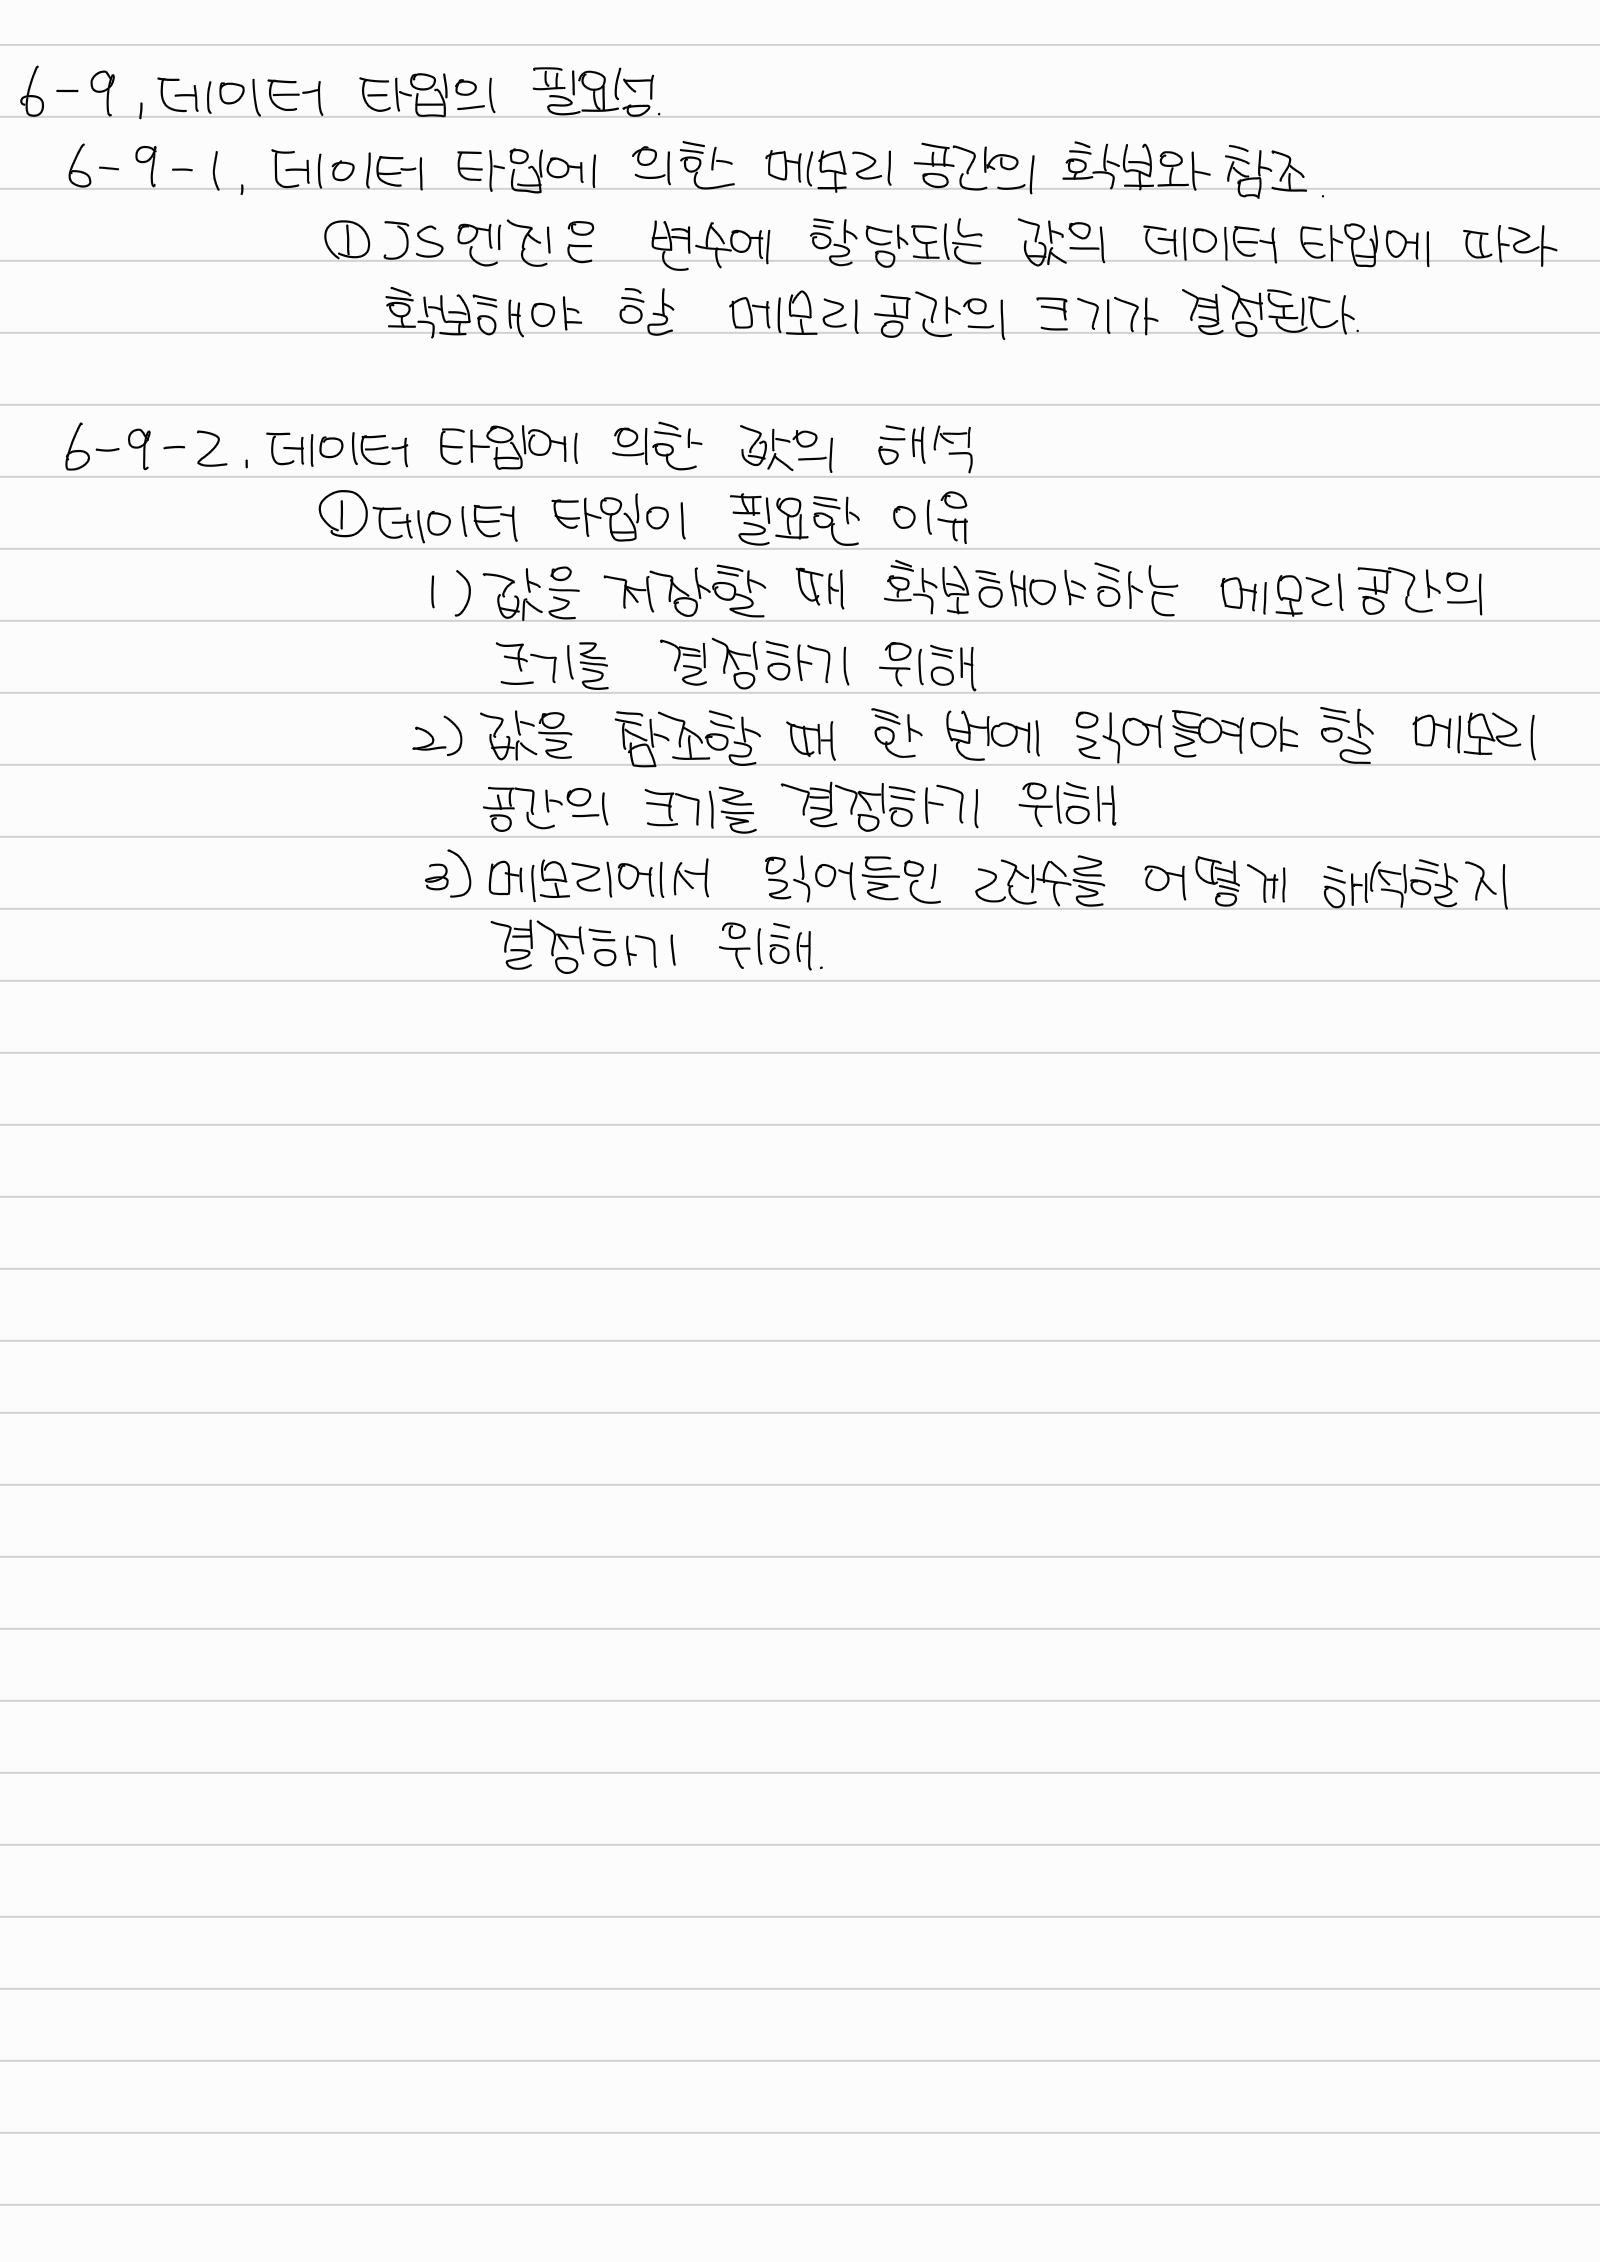 6-9. 데이터 타입의 필요성.
6-9-1. 데이터 타입에 의한 메모리 공간의 확보와 참조.
① JS 엔진은 변수에 할당되는 값의 데이터 타입에 따라
확보해야 할 메모리 공간의 크기가 결정된다.
6-9-2. 데이터 타입에 의한 값의 해석
① 데이터 타입이 필요한 이유
1) 값을 저장할 때 확보해야하는 메모리 공간의
크기를 결정하기 위해
2) 값을 참조할 때 한 번에 읽어들여야 할 메모리
공간의 크기를 결정하기 위해
3) 메모리에서 읽어들인 2진수를 어떻게 해석할지
결정하기 위해.